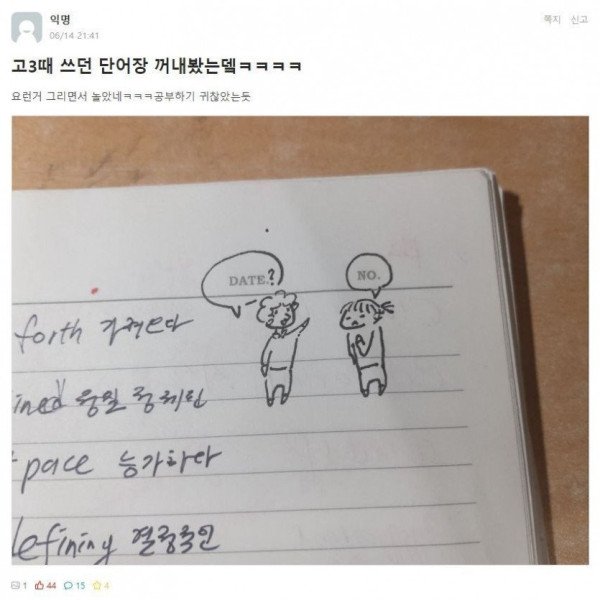 익명
쪽지 신고
06/14 21:41
고3때 쓰던 단어장 꺼내봤는뎈ㅋㅋㅋㅋ
요런거 그리면서 놀았네ㅋㅋㅋ공부하기 귀찮았는듯
DATE.?
NO.
forth
ined
pace 능가하다
efining 결정적인
1 44 15 4